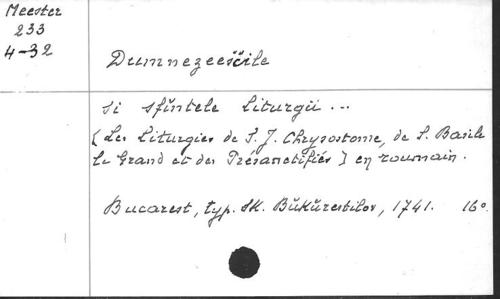 Meester
233
4-32
Dumnezeeščile
si sfintele Liturgii ...
[Les Liturgies de S. J. Chrysostome, de S. Basile
le Grand et des Présanctifiés] en roumain.
Bucarest, typ. SK. Bŭkŭrestilor, 1741. 16°